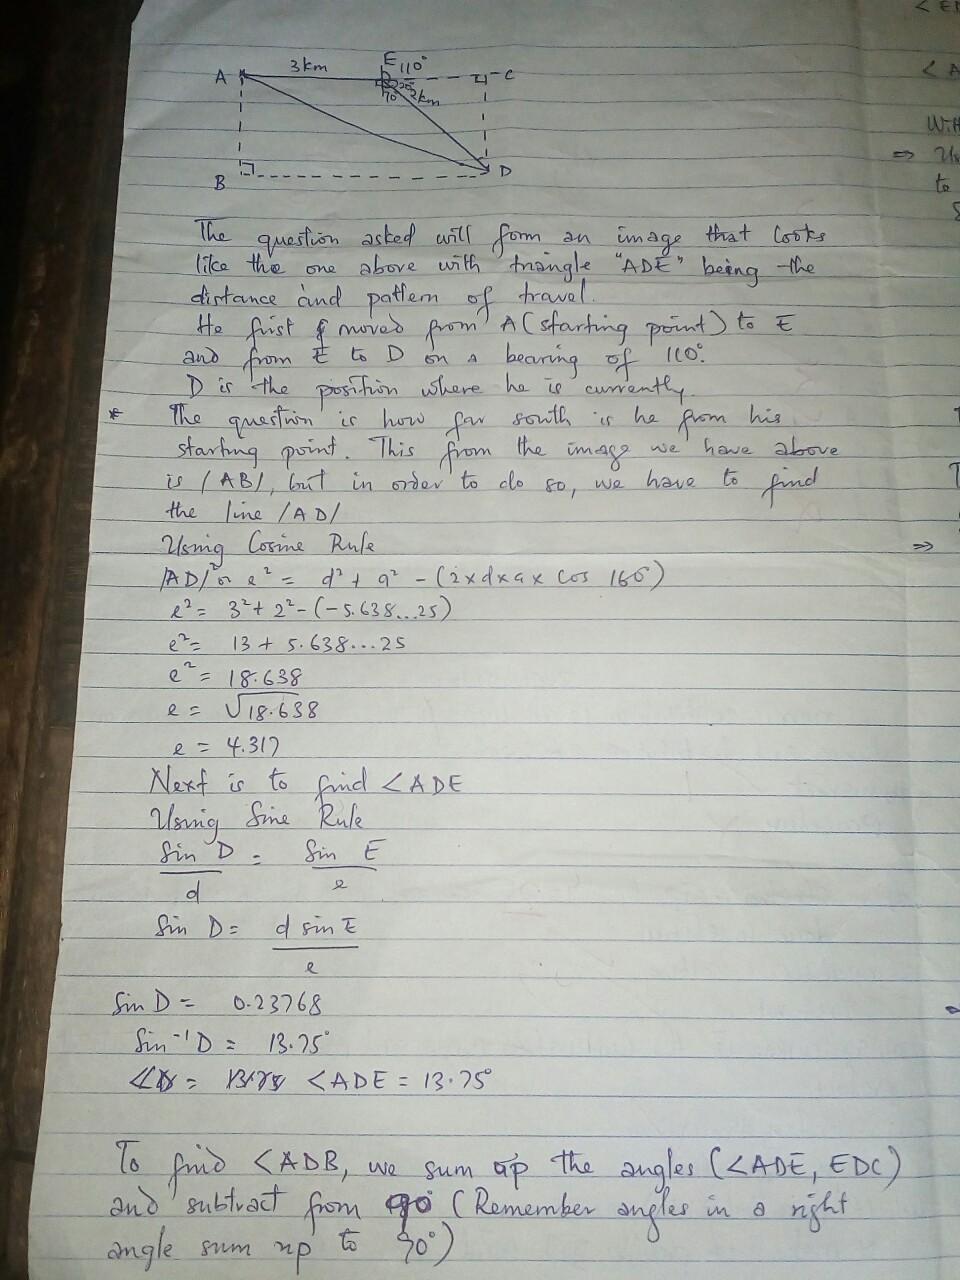 < E
A 3km E 110° C
70° 20° 2km
< A
Wit
⇒ Us
to
B D
The question asked will form an image that looks
like the one above with triangle "ADE" being the
distance and pattern of travel.
He first moved from A (starting point) to E
and from E to D on a bearing of 110°.
D is the position where he is currently.
* The question is how far south is he from his
starting point. This from the image we have above
is /AB/, but in order to do so, we have to find
the line /AD/
Using Cosine Rule
/AD/² or e² = d² + a² - (2 x d x a x Cos 160)
e² = 3² + 2² - (-5.638...25)
e² = 13 + 5.638...25
e² = 18.638
e = √18.638
e = 4.317
Next is to find <ADE
Using Sine Rule
Sin D / d = Sin E / e
Sin D = d sin E / e
Sin D = 0.23768
Sin⁻¹ D = 13.75°
<ADE = 13.75°
To find <ADB, we sum up the angles (<ADE, EDC)
and subtract from 90° (Remember angles in a right
angle sum up to 90°)